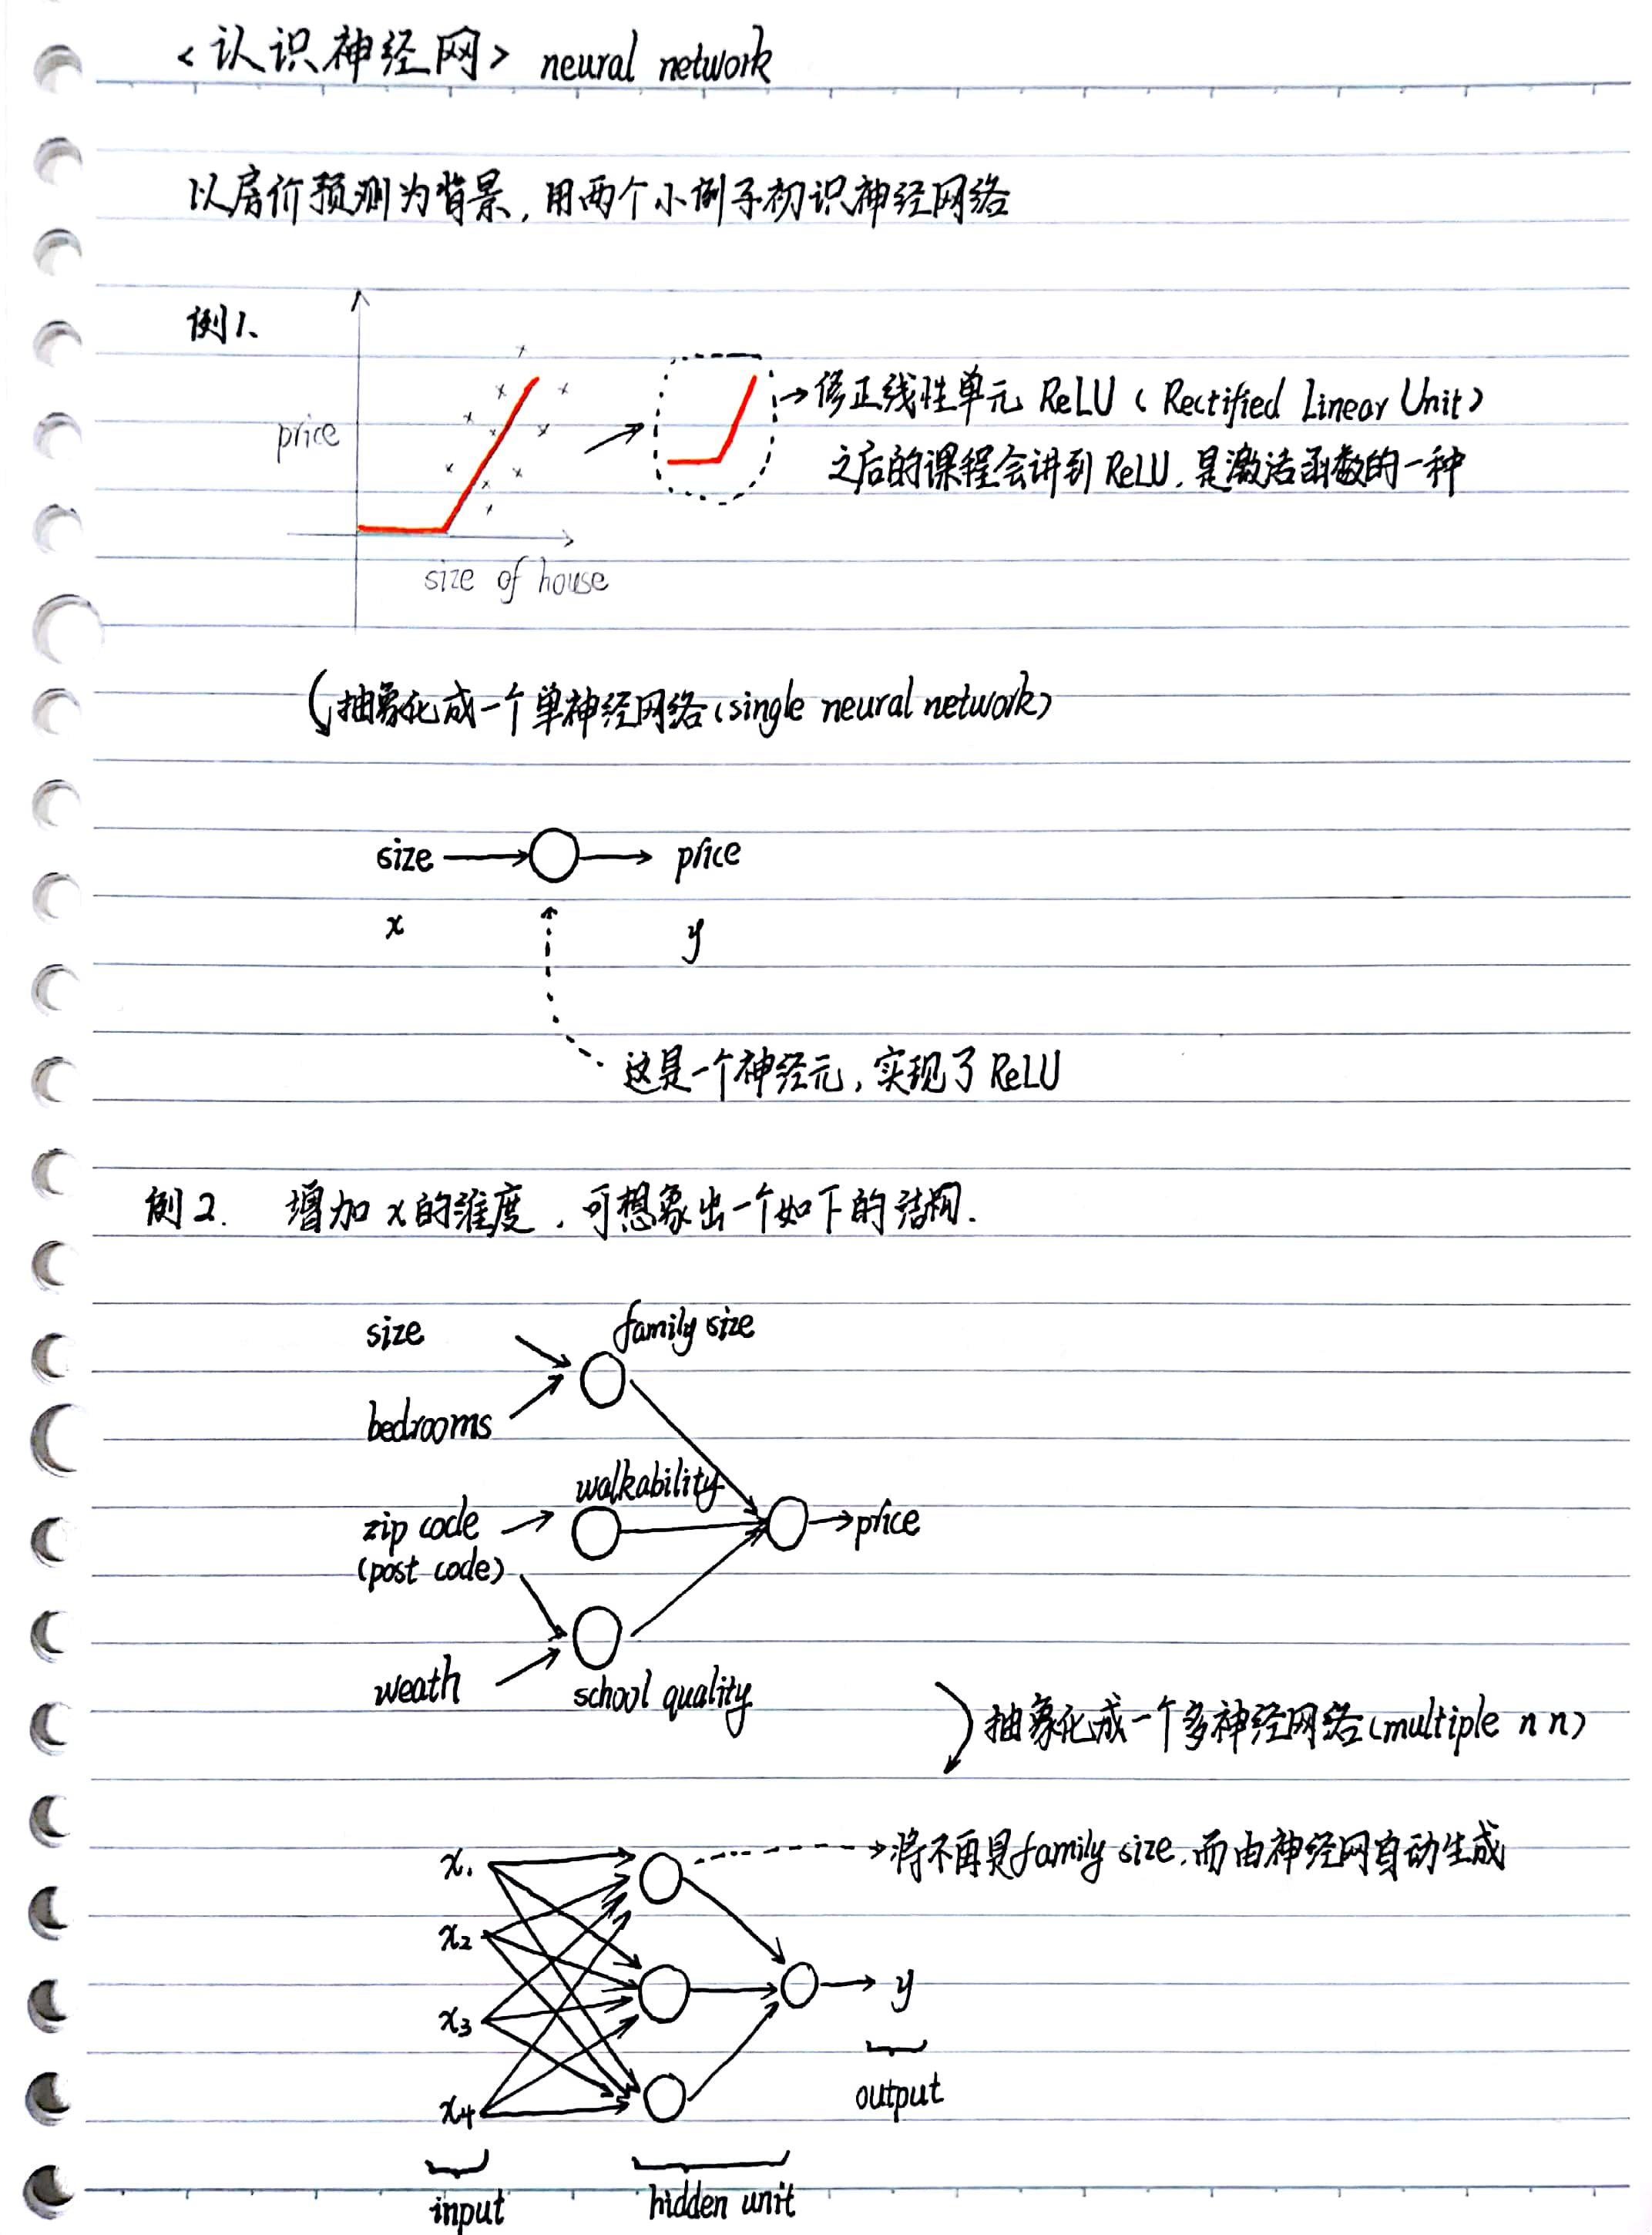 <认识神经网> neural network
以房价预测为背景,用两个小例子初识神经网络
例1、
price
size of house
修正线性单元 ReLU (Rectified Linear Unit)
之后的课程会讲到 ReLU,是激活函数的一种
抽象化成一个单神经网络(single neural network)
size
price
x
y
这是一个神经元,实现了 ReLU
例2. 增加 x 的维度,可想象出一个如下的结构.
size
family size
bedrooms
walkability
zip code
(post code)
price
weath
school quality
抽象化成一个多神经网络(multiple n n)
x₁
将不再是family size,而由神经网自动生成
x₂
y
x₃
output
x₄
input
hidden unit